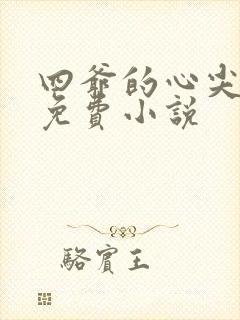 四爷的心尖
免費小説
駱賓王